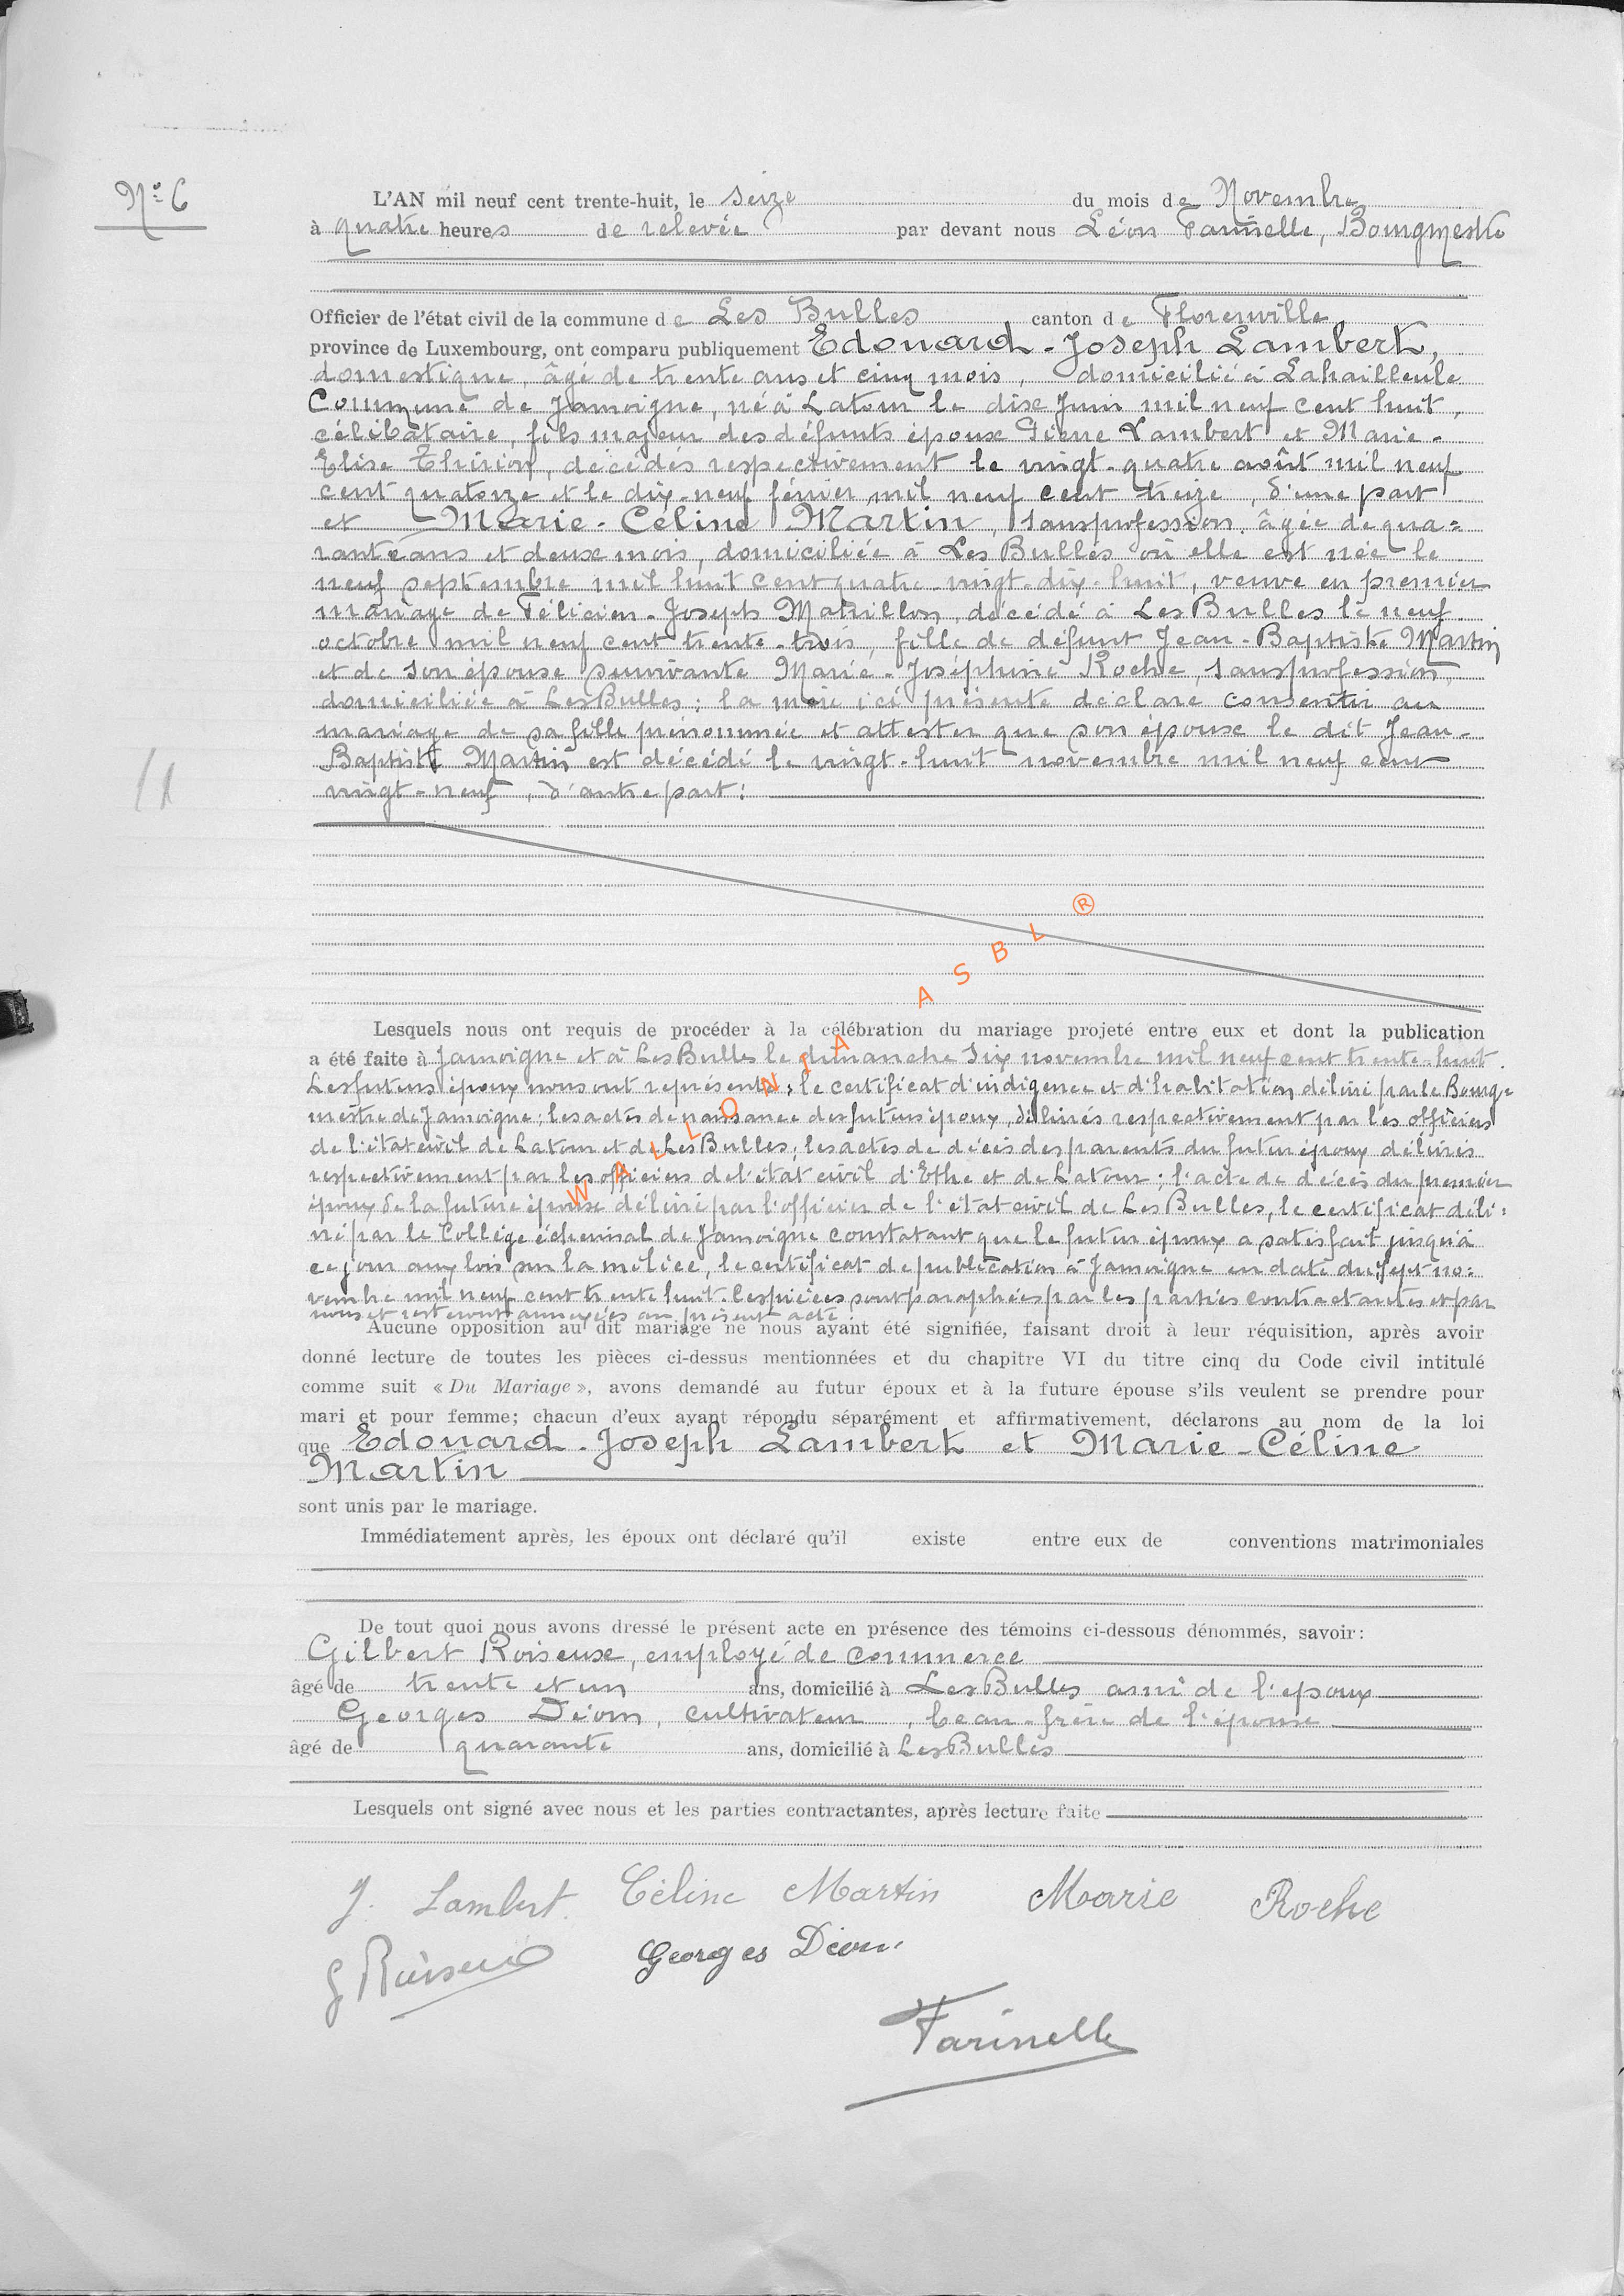 N° 6
L'AN mil neuf cent trente-huit, le seize du mois de Novembre
à quatre heures de relevée par devant nous Léon Farinelle, Bourgmestre
Officier de l'état civil de la commune de Les Bulles canton de Florenville
province de Luxembourg, ont comparu publiquement Edouard-Joseph Lambert,
domestique, âgé de trente ans et cinq mois, domicilié à Lahailleule
Commune de Jamoigne, né à Latour le dix Juin mil neuf cent huit,
célibataire, fils majeur des défunts époux Pierre Lambert et Marie-
Elise Thirion, décédés respectivement le vingt-quatre août mil neuf
cent quatorze et le dix-neuf février mil neuf cent treize, d'une part
et Marie-Céline Martin, sans profession, âgée de qua=
rante ans et deux mois, domiciliée à Les Bulles où elle est née le
neuf septembre mil huit cent quatre-vingt-dix-huit, veuve en premier
mariage de Félicien-Joseph Mathillon, décédé à Les Bulles le neuf
octobre mil neuf cent trente-trois, fille de défunt Jean-Baptiste Martin
et de son épouse survivante Marie-Joséphine Roche, sans profession,
domiciliée à Les Bulles; la mère ici présente déclare consentir au
mariage de sa fille prénommée et attester que son époux le dit Jean-
Baptiste Martin est décédé le vingt-huit novembre mil neuf cent
vingt-neuf, d'autre part:
WALLONIA ASBL ®
Lesquels nous ont requis de procéder à la célébration du mariage projeté entre eux et dont la publication
a été faite à Jamoigne et à Les Bulles le dimanche six novembre mil neuf cent trente-huit.
Les futurs époux nous ont représenté: le certificat d'indigence et d'habitation délivré par le Bourg=
mestre de Jamoigne; les actes de naissance des futurs époux, délivrés respectivement par les officiers
de l'état civil de Latour et de Les Bulles; les actes de décès des parents du futur époux délivrés
respectivement par les officiers de l'état civil d'Ethe et de Latour; l'acte de décès du premier
époux de la future épouse délivré par l'officier de l'état civil de Les Bulles, le certificat déli=
vré par le Collège échevinal de Jamoigne constatant que le futur époux a satisfait jusqu'à
ce jour aux lois sur la milice, le certificat de publication à Jamoigne en date du sept no=
vembre mil neuf cent trente huit. Les pièces sont paraphées par les parties contractantes et par
nous et resteront annexées au présent acte.
Aucune opposition au dit mariage ne nous ayant été signifiée, faisant droit à leur réquisition, après avoir
donné lecture de toutes les pièces ci-dessus mentionnées et du chapitre VI du titre cinq du Code civil intitulé
comme suit « Du Mariage », avons demandé au futur époux et à la future épouse s'ils veulent se prendre pour
mari et pour femme; chacun d'eux ayant répondu séparément et affirmativement, déclarons au nom de la loi
que Edouard-Joseph Lambert et Marie-Céline
Martin
sont unis par le mariage.
Immédiatement après, les époux ont déclaré qu'il existe entre eux de conventions matrimoniales
De tout quoi nous avons dressé le présent acte en présence des témoins ci-dessous dénommés, savoir:
Gilbert Roiseux, employé de commerce
âgé de trente et un ans, domicilié à Les Bulles ami de l'époux
Georges Dion, cultivateur, beau-frère de l'épouse
âgé de quarante ans, domicilié à Les Bulles
Lesquels ont signé avec nous et les parties contractantes, après lecture faite
J. Lambert. Céline Martin Marie Roche
G Roiseux Georges Dion
Farinelle